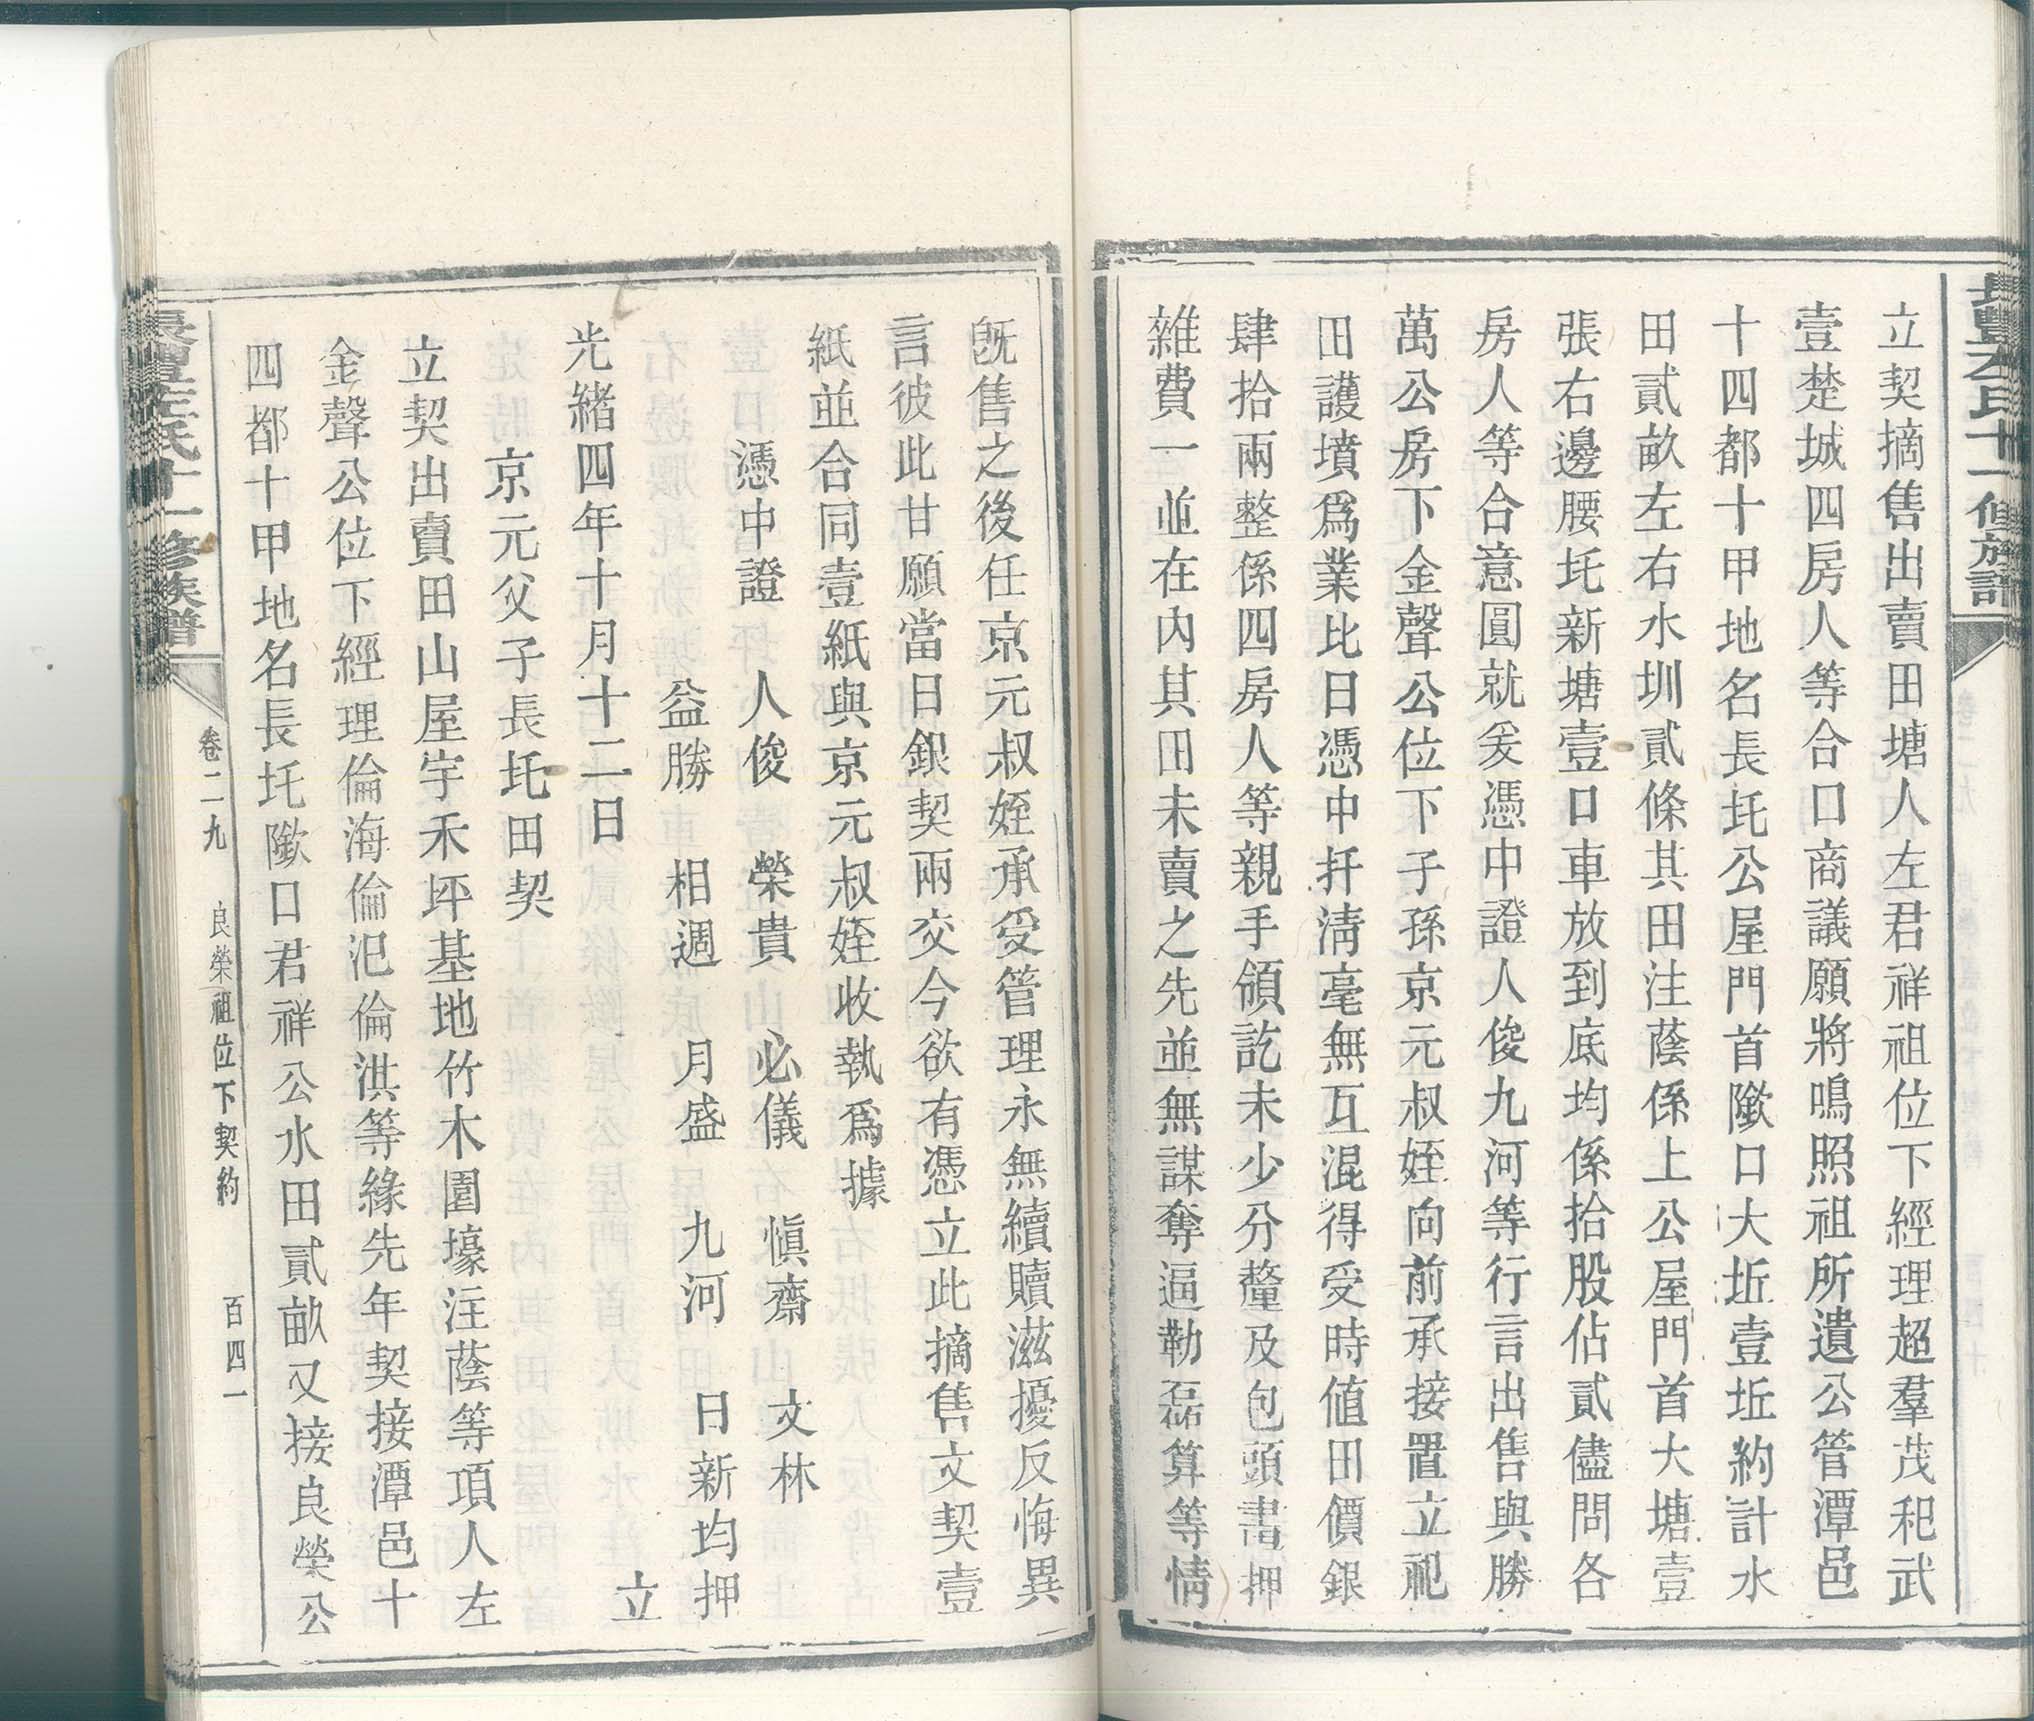 立契摘售出賣田塘人左君祥祖位下經理超羣茂祀武
壹楚城四房人等合口商議願將鳴照祖所遺公管潭邑
十四都十甲地名長圫公屋門首隞口大坵壹坵約計水
田貳畝左右水圳貳條其田注蔭係上公屋門首大塘壹
張右邊腰圫新塘壹口車放到底均係拾股佔貳儘問各
房人等合意圓就爰憑中證人俊九河等行言出售與勝
萬公房下金聲公位下子孫京元叔姪向前承接置立祀
田護墳爲業比日憑中扦清毫無互混得受時値田價銀
肆拾兩整係四房人等親手領訖未少分釐及包頭書押
雜費一並在內其田未賣之先並無謀奪逼勒磊算等情
旣售之後任京元叔姪承受管理永無續贖滋擾反悔異
言彼此甘願當日銀契兩交今欲有憑立此摘售文契壹
紙並合同壹紙與京元叔姪收執爲據
憑中證 人俊 榮貴 必儀 愼齋 文林
益勝 相週 月盛 九河 日新均押
光緒四年十月十二日 立
京元父子長圫田契
立契出賣田山屋宇禾坪基地竹木園壕注蔭等項人左
金聲公位下經理倫海倫汜倫淇等緣先年契接潭邑十
四都十甲地名長圫隞口君祥公水田貳畝又接良榮公
卷二九 良榮祖位下契約 百四一